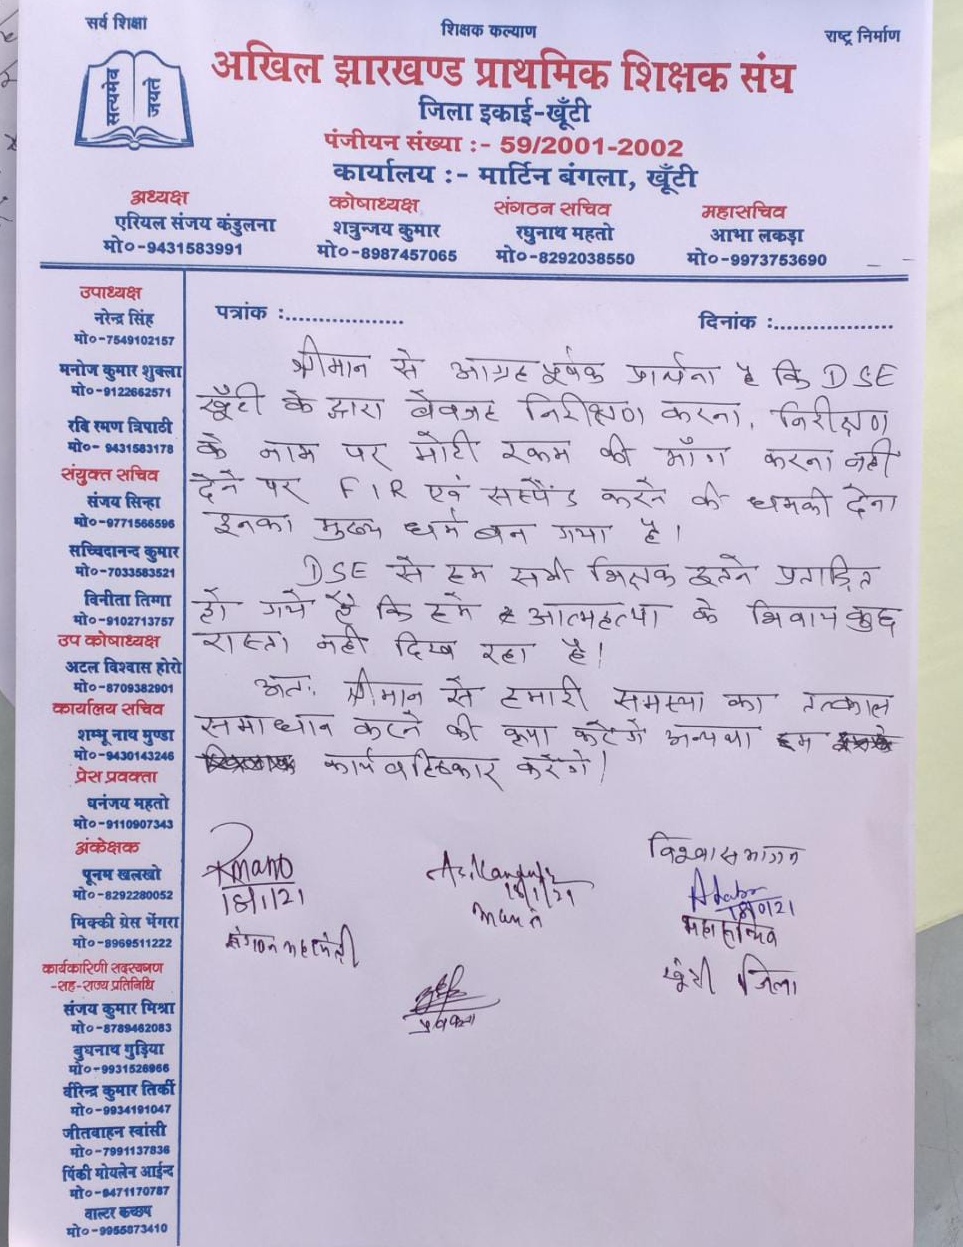 सर्व शिक्षा
शिक्षक कल्याण
राष्ट्र निर्माण
सत्यमेव जयते
अखिल झारखण्ड प्राथमिक शिक्षक संघ
जिला इकाई-खूँटी
पंजीयन संख्या :- 59/2001-2002
कार्यालय :- मार्टिन बंगला, खूँटी
अध्यक्ष
एरियल संजय कंडुलना
मो०-9431583991
कोषाध्यक्ष
शत्रुन्जय कुमार
मो०-8987457065
संगठन सचिव
रघुनाथ महतो
मो०-8292038550
महासचिव
आभा लकड़ा
मो०-9973753690
उपाध्यक्ष
नरेन्द्र सिंह
मो०-7549102157
मनोज कुमार शुक्ला
मो०-9122662571
रवि रमण त्रिपाठी
मो०- 9431583178
संयुक्त सचिव
संजय सिन्हा
मो०-9771566596
सच्चिदानन्द कुमार
मो०-7033583521
विनीता तिग्गा
मो०-9102713757
उप कोषाध्यक्ष
अटल विश्वास होरो
मो०-8709382901
कार्यालय सचिव
शम्भू नाथ मुण्डा
मो०-9430143246
प्रेस प्रवक्ता
धनंजय महतो
मो०-9110907343
अंकेक्षक
पूनम खलखो
मो०-8292280052
मिक्की ग्रेस भेंगरा
मो०-8969511222
कार्यकारिणी सदस्यगण
-सह-राज्य प्रतिनिधि
संजय कुमार मिश्रा
मो०-8789462083
बुधनाथ गुड़िया
मो०-9931526966
वीरेन्द्र कुमार तिर्की
मो०-9934191047
जीतवाहन स्वांसी
मो०-7991137836
पिंकी मोयलेन आईन्द
मो०-9471170787
वाल्टर कच्छप
मो०-9955873410
पत्रांक :..................
दिनांक :..................
श्रीमान से आग्रह पूर्वक प्रार्थना है कि DSE
खूँटी के द्वारा बेवजह निरीक्षण करना, निरीक्षण
के नाम पर मोटी रकम की माँग करना नहीं
देने पर FIR एवं सस्पेंड करने की धमकी देना
इनका मुख्य धर्म बन गया है।
DSE से हम सभी शिक्षक इतने प्रताड़ित
हो गये है कि हमे आत्महत्या के शिवाय कुछ
रास्ता नहीं दिख रहा है।
अतः श्रीमान से हमारी समस्या का तत्काल
समाधान करने की कृपा करेंगे अन्यथा हम
कार्य वहिष्कार करेंगे।
18/1/21
विश्वासभाजन
महासचिव
खूंटी जिला
प्रवक्ता